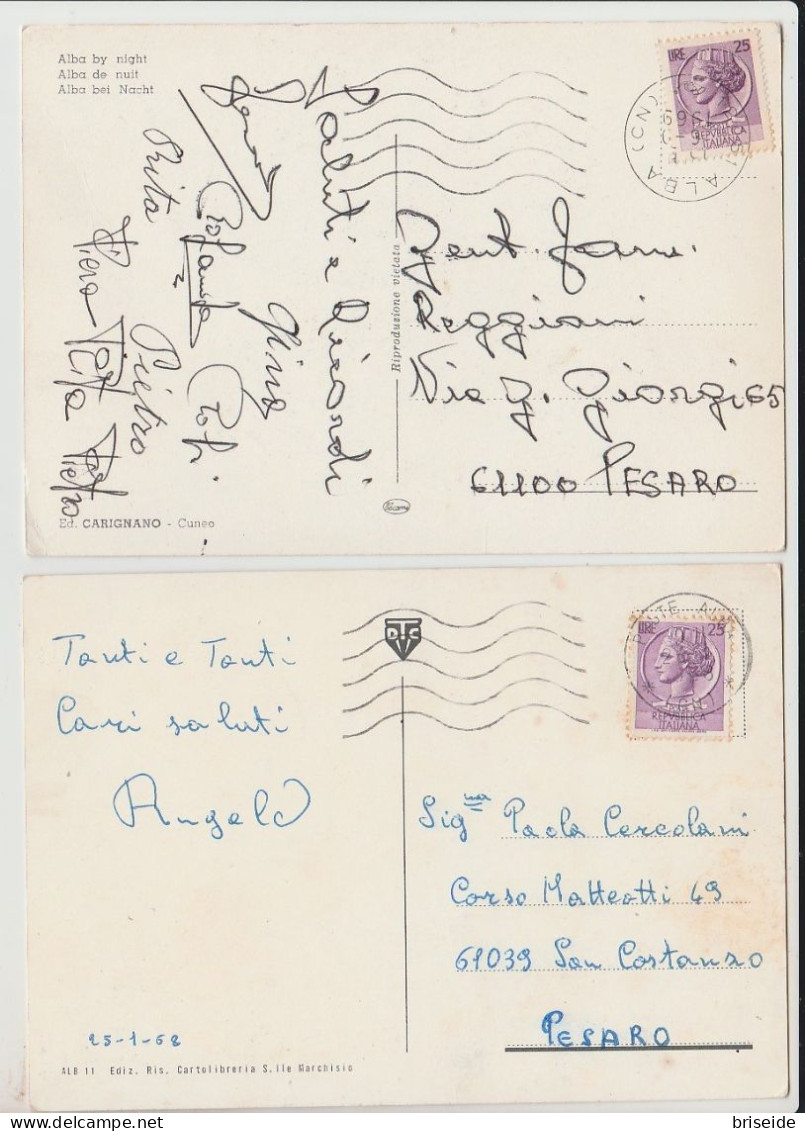 Alba by night
Alba de nuit
Alba bei Nacht
LIRE 25
REPVBBLICA
ITALIANA
ALBA (CN)
1969
Saluti e Ricordi
Gino
Rita
Pietro
Piero
Riproduzione vietata
Gent. Fam.
Reggiani
Via G. Giorgi, 65
61100 PESARO
Ed. CARIGNANO - Cuneo
DTCV
LIRE 25
REPVBBLICA
ITALIANA
POSTE ALBA
Tanti e Tanti
Cari saluti
Angelo
Sig.na Paola Cercolani
Corso Matteotti 49
61039 San Costanzo
PESARO
25-1-68
ALB 11 Ediz. Ris. Cartolibreria S.lle Marchisio
briseide